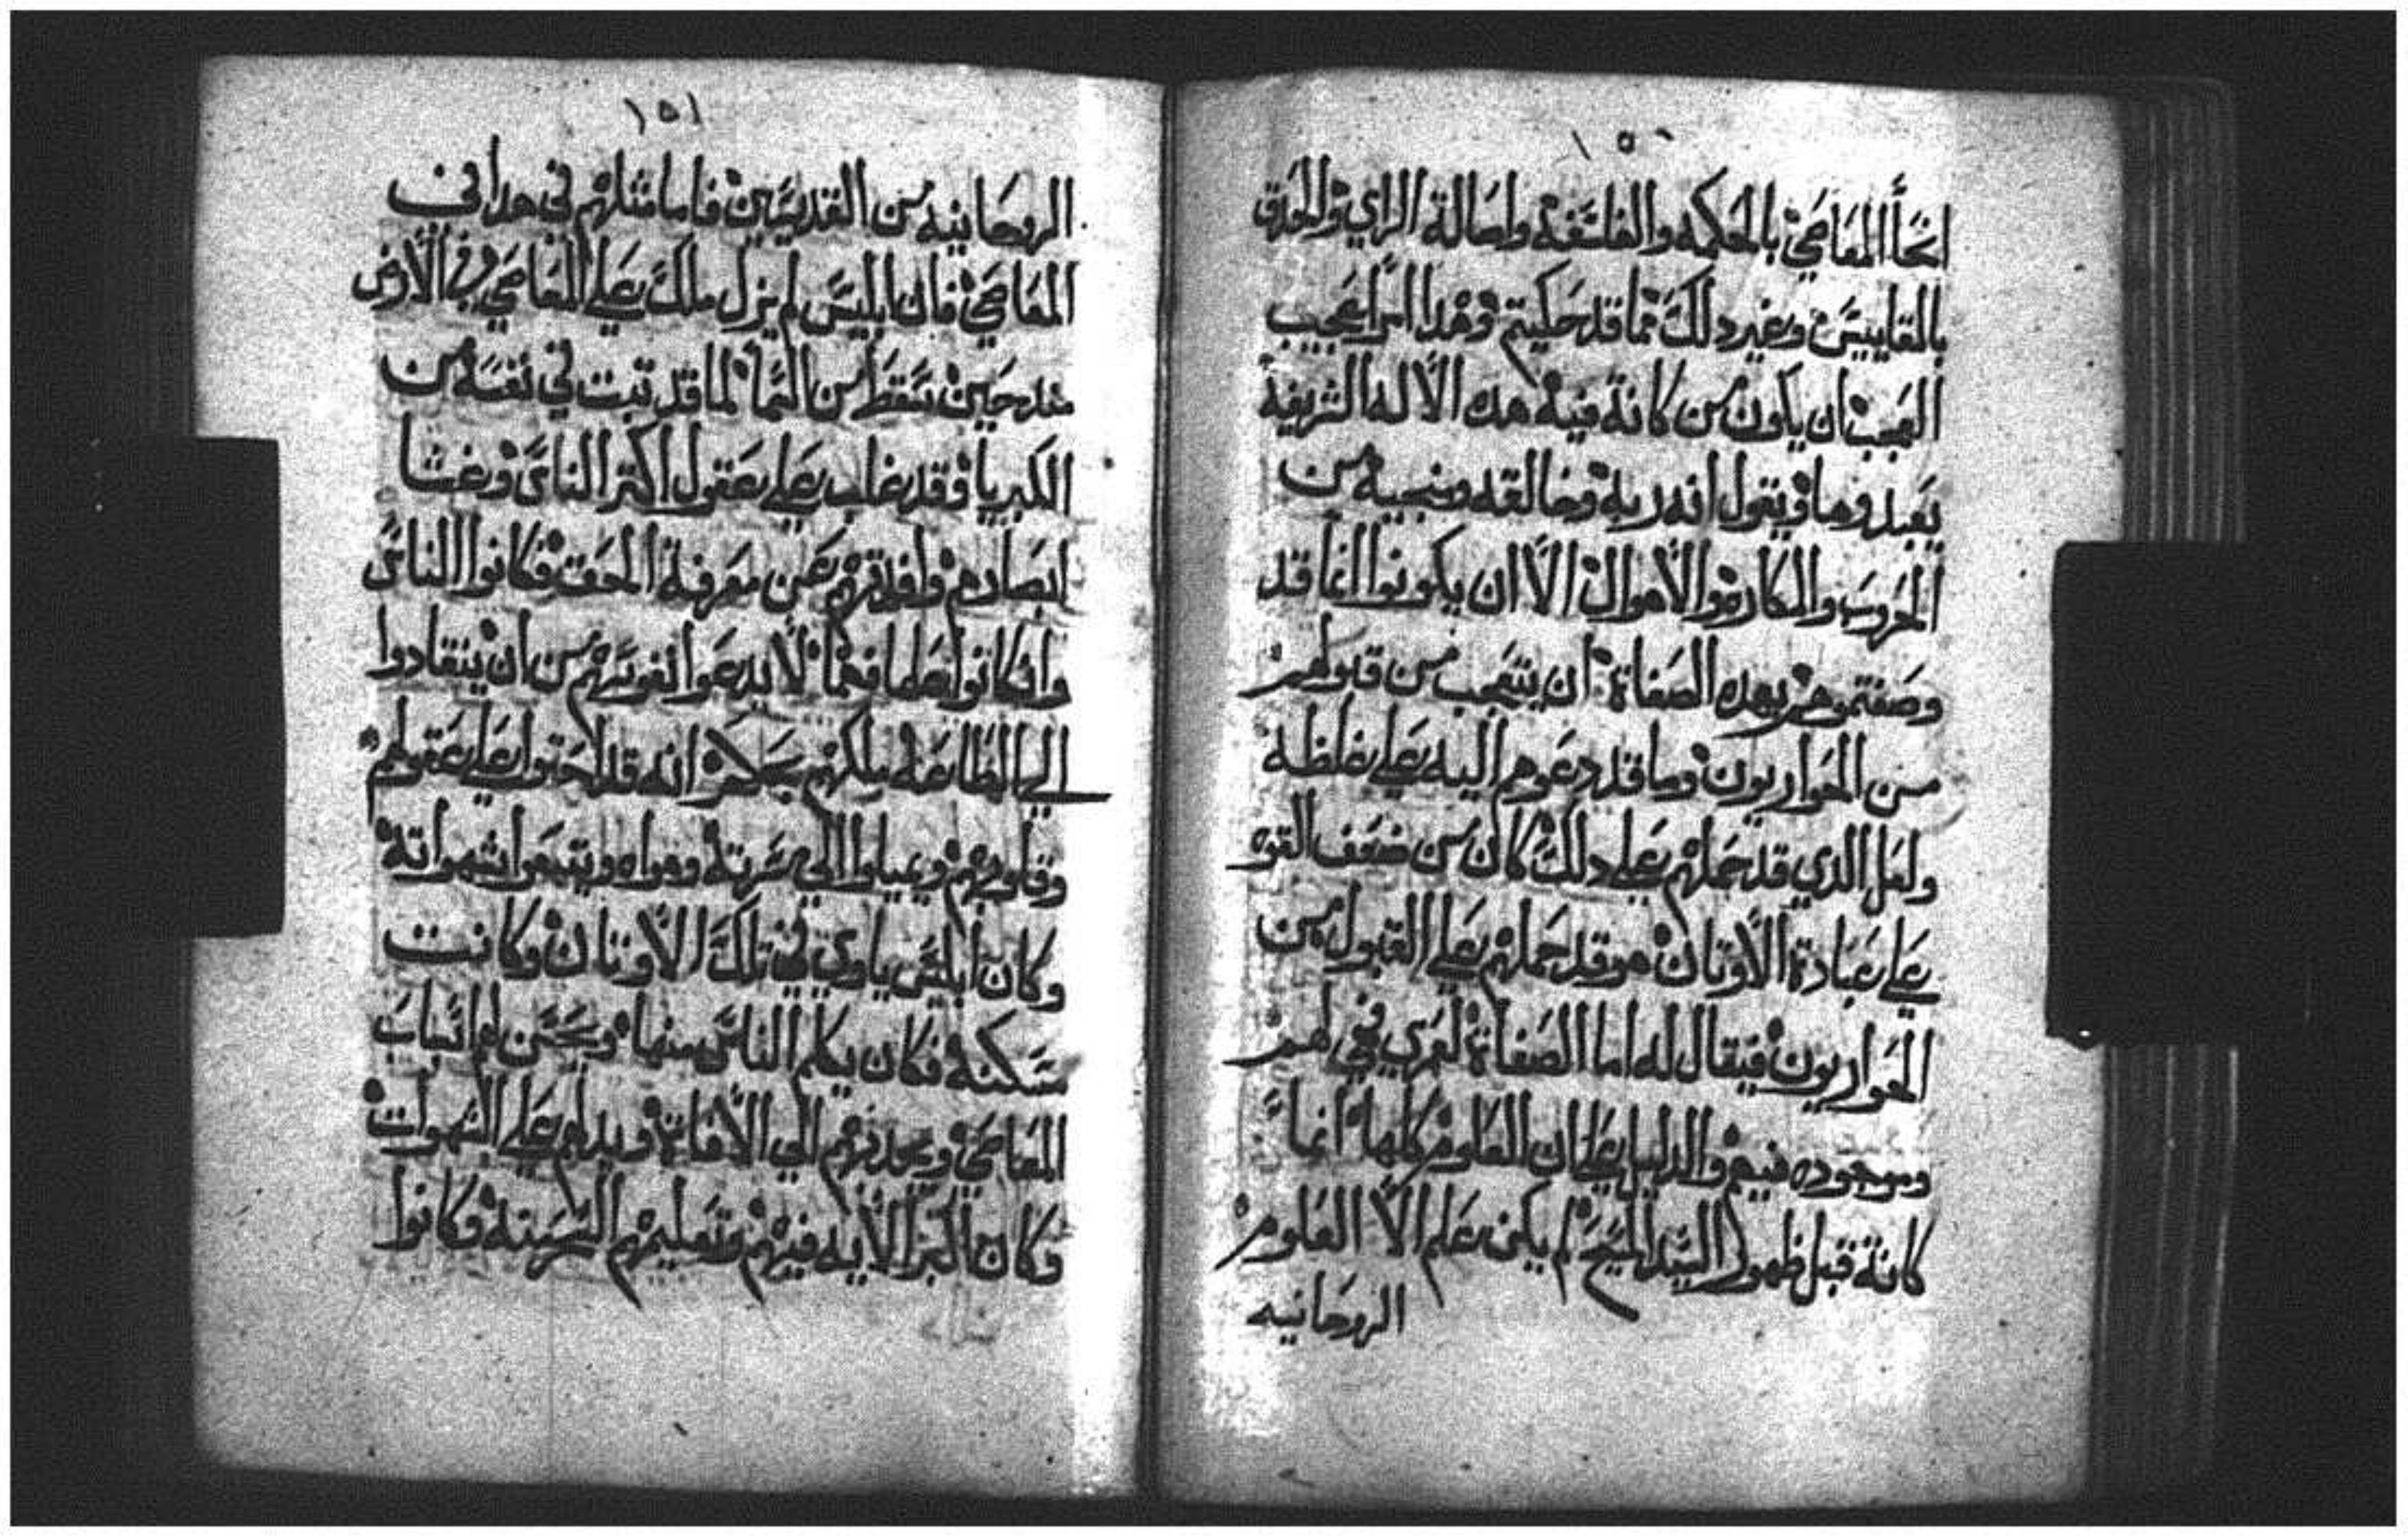 ١٥٠
انحأ المعاصي بالحكمه والفلسفه واصالة الراي والحدق
بالمقاييس وغير دلك مما قد حكيتم وهدا امرا عجيب
العجب ان يكون من كانة فيه هده الاله الشريفة
يعبدوها ويقول انه ربه وخالقه ومنجيه من
الحروب والمكاره والاهوال الا ان يكونوا انما قد
وصفتموهم بهده الصفاة ان يتعجب من قبولهم
من الحواريون وما قد دعوهم اليه علي غلظه
ولعل الدي قد حملهم علي دلك كان من ضعف القوه
علي عبادة الاوتان هو قد حملهم علي القبول من
الحواريون فيقال له اما الصفاة لعمري فهي لهم
وموجوده فيهم والدليل علي ان العلوم كلها انما
كانة قبل ظهور السيد المسيح لم يكن علم الا العلوم
الروحانيه
١٥١
الروحانيه من القديسين فاما مثلهم في حداق
المعاصي فان ابليس لم يزل ملك علي المعاصي في الارض
مند حين سقط من السما لما قد تبت في نفسه من
الكبريا وقد غلب علي عقول اكتر الناس وغشا
ابصارهم وافدتهم عن معرفة الحق فكانوا الناس
وان كانوا علما فهما لا يدعوا نفوسهم من ان ينقادوا
الي الطاعه ملكهم بحكم انه قد احتوا علي عقولهم
وقلوبهم ويميلوا الي سرته وهواه ويتبعوا شهواته
وكان ابليس ياوي في تلك الاوتان وكانت
مسكنه فكان يكلم الناس منها ويحسن لهم اسباب
المعاصي ويحدبهم الي الافاة ويدلهم علي الشهوات
وكان اكبر الايه فيهم وتعليمهم السرته وكانوا